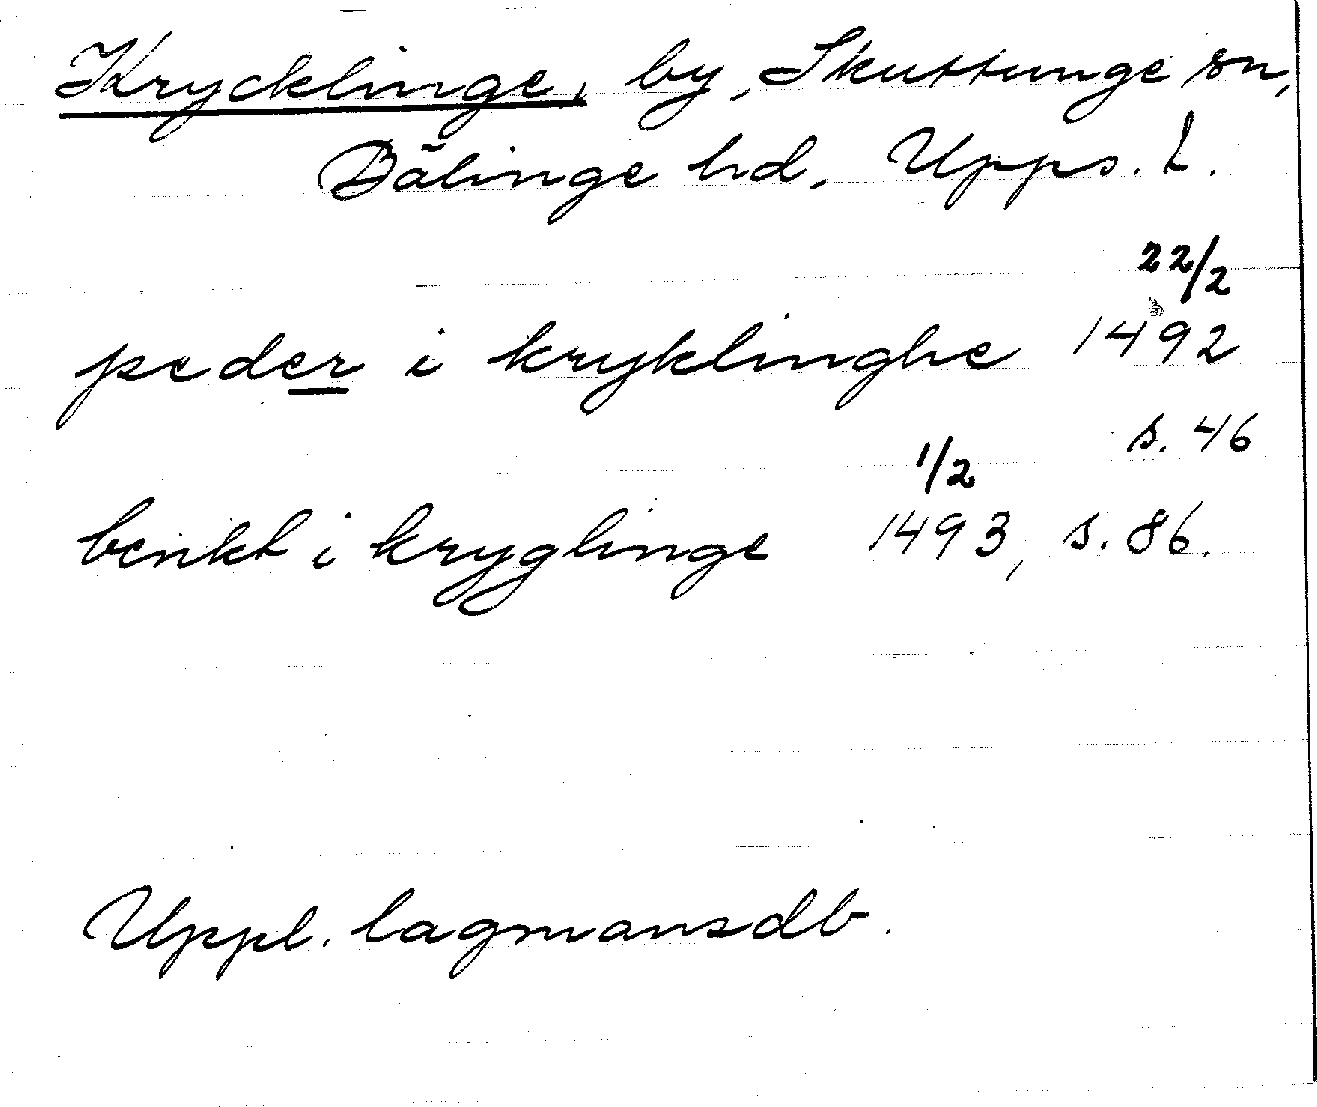 Krycklinge, by, Skuttunge sn,
Bälinge hd, Upps. l.
22/2
peder i kryklinghe 1492
s. 46
1/2
benkt i kryglinge 1493, s. 86.
Uppl. lagmansdb.